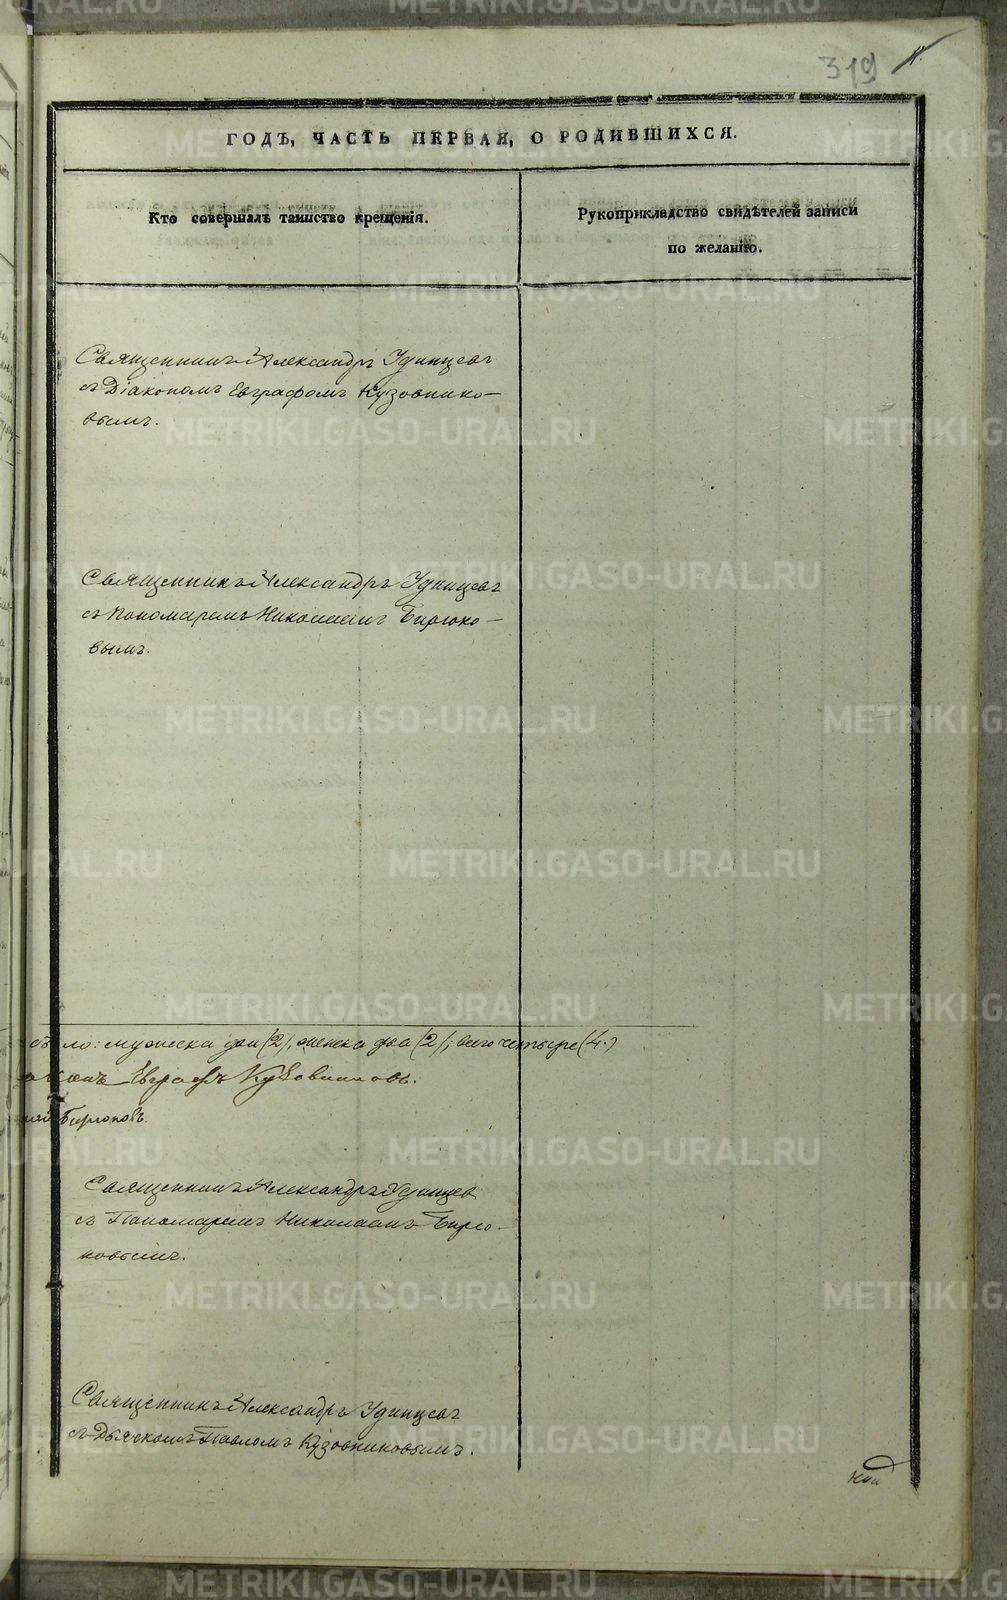 319
ГОДЪ, ЧАСТЬ ПЕРВАЯ, О РОДИВШИХСЯ.
Кто совершалъ таинство крещенія.
Рукоприкладство свидѣтелей записи
по желанію.
Священникъ Александръ Удинцевъ
съ Діакономъ Евграфомъ Кузовнико-
вымъ.
Священникъ Александръ Удинцевъ
съ Пономаремъ Николаемъ Бирюко-
вымъ.
было: мужеска два (2), женска два (2); всего четыре (4.)
Евграфъ Кузовниковъ.
Бирюковъ
Священникъ Александръ Удинцев
съ Пономаремъ Николаемъ Бирю-
ковымъ.
Священникъ Александръ Удинцевъ
съ Дьячкомъ Павломъ Кузовниковымъ.
METRIKI.GASO-URAL.RU